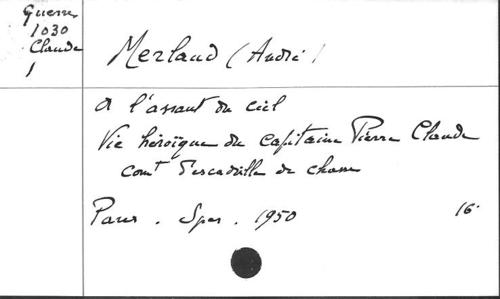 Guerre
1030
Claude
1
Merland (André)
A l'assaut du ciel
Vie héroïque du capitaine Pierre Claude
comt d'escadrille de chasse
Paris. Spes. 1950
16°